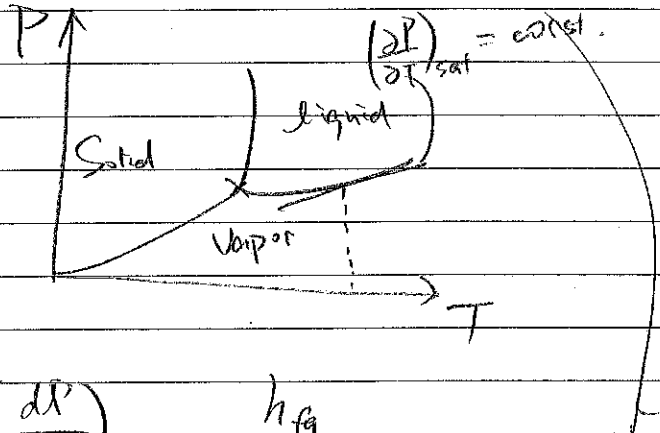 P
(∂P/∂T)sat = const.
liquid
Solid
Vaipor
T
dP) hfg